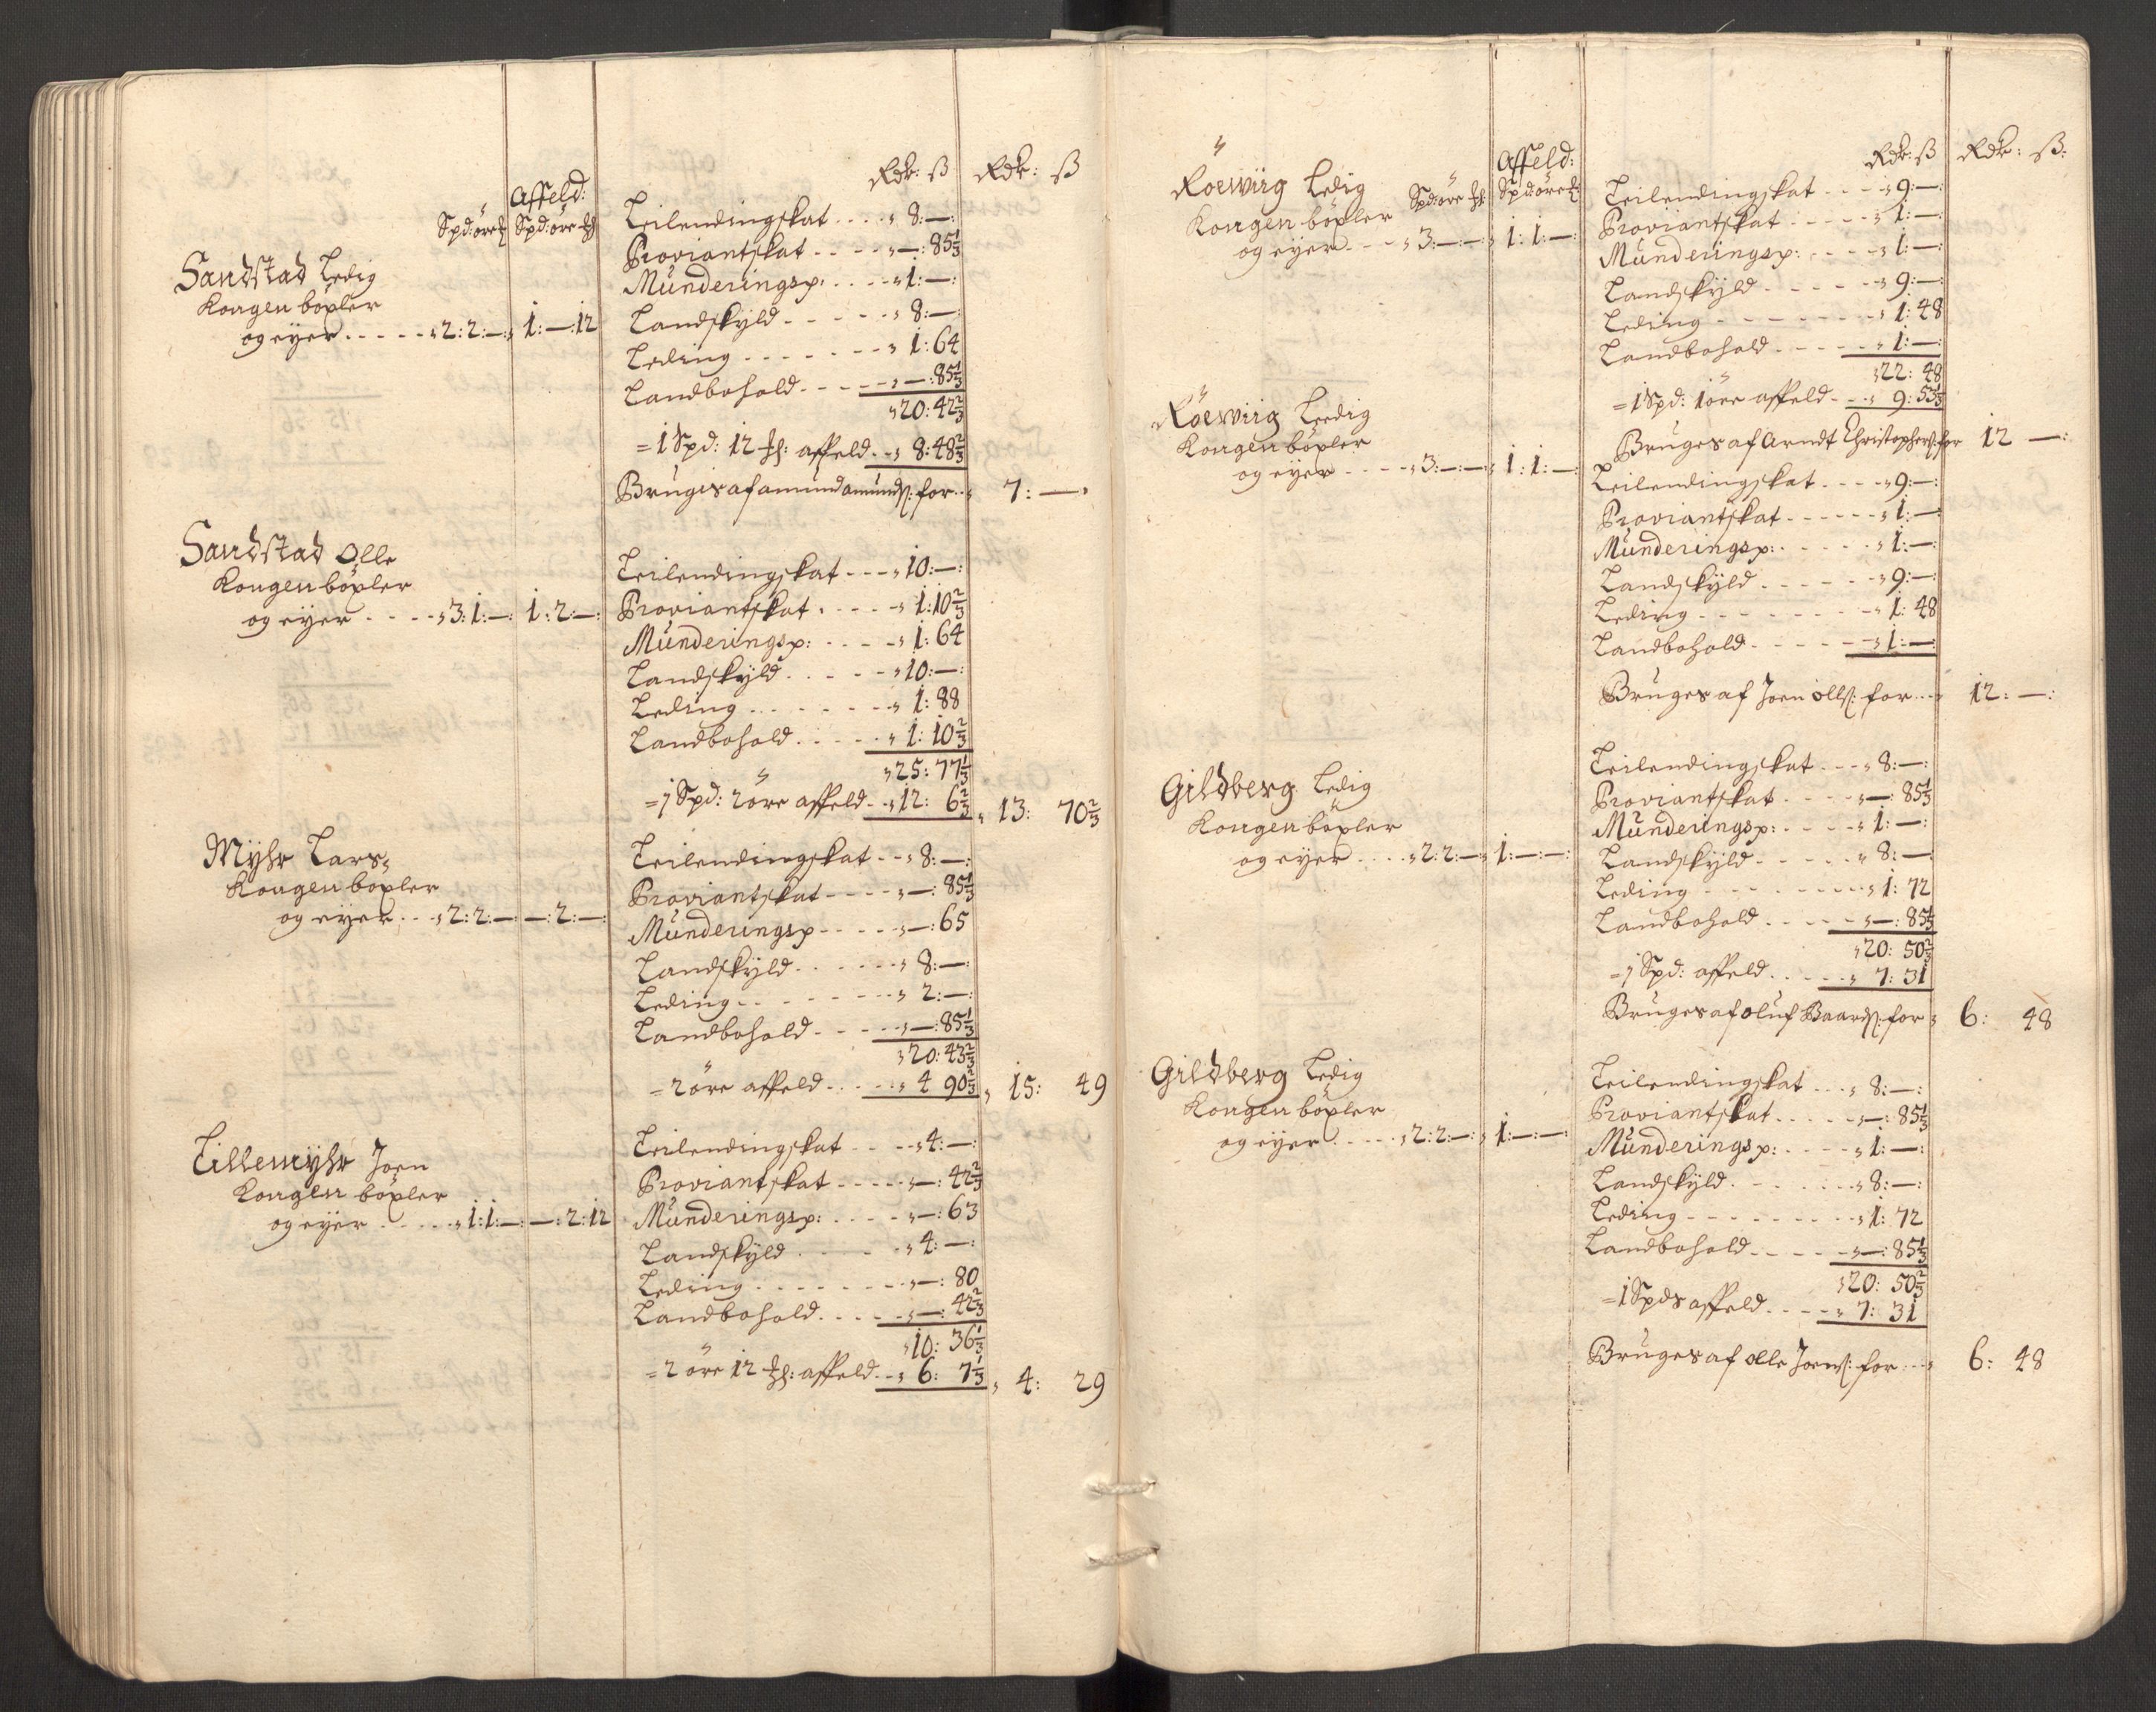 Rdr: ß Rdr: ß
Affeld:
Spd: öre Spd: öre
Sandstad Ledig
Kongen böxler
og eyer . . . . . 2: 2: — 1: —: 12
Leilendingskat . . . . 8: —:
Proviantskat . . . . —: 85 1/3
Munderingsp: . . . . 1: —:
Landskyld . . . . . 8: —:
Leding . . . . . . . 1: 64
Landbohold . . . . —: 85 1/3
20: 42 2/3
= 1 Spd: 12 affeld . . 8: 48 2/3
Bruges af amund amunds: for . . 7: —
Sandstad Olle
Kongen böxler
og eyer . . . . 3: 1: — 1: 2: —:
Leilendingskat . . . 10: —:
Proviantskat . . . . . 1: 10 2/3
Munderingsp: . . . . 1: 64
Landskyld . . . . . 10: —:
Leding . . . . . . . 1: 88
Landbohold . . . . . 1: 10 2/3
25: 77 1/3
= 1 Spd: 2 öre affeld . . 12: 6 2/3 13: 70 2/3
Myhr Lars
Kongen böxler
og eyer . . . 2: 2: — —: 2: —:
Leilendingskat . . 8: —:
Proviantskat . . . . —: 85 1/3
Munderingsp . . . . —: 65
Landskyld . . . . . . 8: —:
Leding . . . . . . . 2: —:
Landbohold . . . . . —: 85 1/3
20: 43 2/3
= 2 öre affeld . . . . . 4 90 2/3 15: 49
Lillemyhr Joen
Kongen böxler
og eyer . . . . . 1: 1: — —: 2: 12
Leilendingskat . . . . 4: —:
Proviantskat . . . . . —: 42 2/3
Munderingsp: . . . . —: 63
Landskyld . . . . . 4: —:
Leding . . . . . . . . —: 80
Landbohold . . . . . —: 42 2/3
10: 36 1/3
= 2 öre 12 affeld . . 6: 7 1/3 4: 29
Rdr: ß Rdr: ß:
Affeld:
Röewiig Ledig Spd: öre Spd: öre
Kongen böxler
og eyer . . . 3: —: — 1: 1: —:
Leilendingskat . . . . 9: —:
Proviantskat . . . . . 1: —:
Munderingsp: . . . . 1: —:
Landskyld . . . . . . 9: —:
Leding . . . . . . . . 1: 48
Landbohold . . . . . 1: —:
22: 48
= 1 Spd: 1 öre affeld . . . 9: 53 1/3
Bruges af Arndt Christophers: for 12 —:
Röewiig Leedig
Kongen böxler
og eyer . . . . 3: —: — 1: 1: —:
Leilendingskat . . . . 9: —:
Proviantskat . . . . . . 1: —
Munderingsp: . . . . . 1: —:
Landskyld . . . . . . 9: —:
Leding . . . . . . . . 1: 48
Landbohold . . . . . . 1: —:
Bruges af Joen olls: for . . . 12: —:
Gildberg Ledig
Kongen böxler
og eyer . . . . 2: 2: — 1: —: —:
Leilendingskat . . . 8: —:
Proviantskat . . . . —: 85 1/3
Munderingsp: . . . . 1: —:
Landskyld . . . . . . 8: —:
Leding . . . . . . . . 1: 72
Landbohold . . . . . —: 85 1/3
20: 50 2/3
= 1 Spd: affeld . . . . . 7: 31
Bruges af oluf Baards: for 6: 48
Gildberg Ledig
Kongen böxler
og eyer . . . . . 2: 2: —: 1: —: —:
Leilendingskat . . . 8: —:
Proviantskat . . . . . —: 85 1/3
Munderingsp: . . . . 1: —:
Landskyld . . . . . . . 8: —:
Leding . . . . . . . . . 1: 72
Landbohold . . . . . —: 85 1/3
20: 50 2/3
= 1 Spds affeld . . . . 7: 31
Bruges af olle Joens: for . . . 6: 48